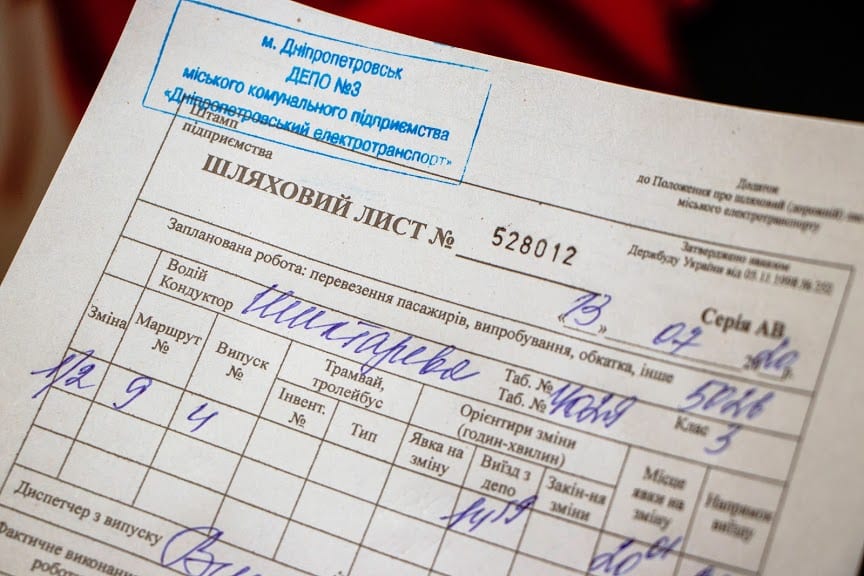 м. Дніпропетровськ
ДЕПО №3
міського комунального підприємства
«Дніпропетровський електротранспорт»
Штамп
підприємства
Додаток
до Положення про шляховий (дорожній)
міського електротранспорту
ШЛЯХОВИЙ ЛИСТ № 528012
Затверджено наказом
Держбуду України від 05.11.1998 №
Серія АВ
«13» 07 2020р.
Запланована робота: перевезення пасажирів, випробування, обкатка, інше
Водій
Кондуктор
Таб. № 5026
Таб. № 4029
Клас 3
Зміна
Маршрут №
Випуск №
Трамвай, тролейбус
Інвент. №
Тип
Орієнтири зміни (годин-хвилин)
Явка на зміну
Виїзд з депо
Закін-ня зміни
Місце явки на зміну
Напрямок виїзду
1/2 9 4 14 59 20 01
Диспетчер з випуску
Фактичне виконання